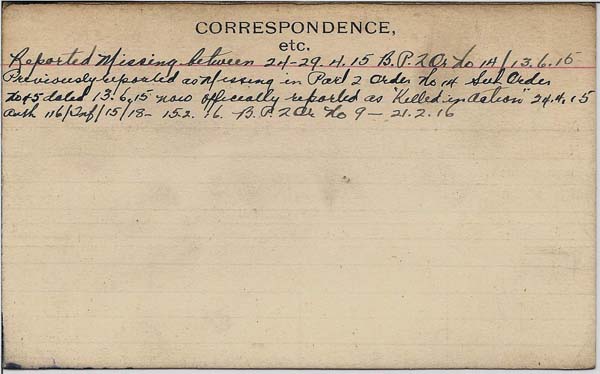 CORRESPONDENCE,
etc.
Reported Missing between 24-29.4.15 B.P.2 Or No 14/13.6.15
Previously reported as Missing in Part 2 Order No 14 Sub Order
No 5 dated 13.6.15 now officially reported as "Killed in Action" 24.4.15
Auth 116/Inf/15/18- 15.2.16. B.P.2 Or No 9 - 21.2.16